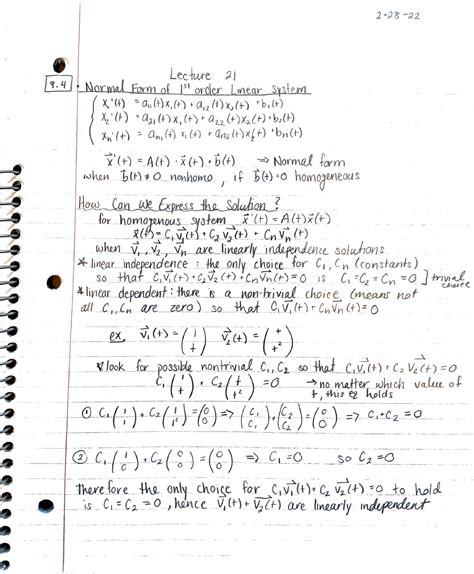 2-28-22
Lecture 21
9.4 • Normal Form of 1st order Linear System
x₁'(t) = a₁₁(t)x₁(t) + a₁₂(t)x₂(t) + b₁(t)
x₂'(t) = a₂₁(t)x₁(t) + a₂₂(t)x₂(t) + b₂(t)
xₙ'(t) = aₙ₁(t)x₁(t) + aₙ₂(t)x₂(t) + bₙ(t)
x⃗'(t) = A(t) · x⃗(t) + b⃗(t) ⇒ Normal form
when b⃗(t) ≠ 0 nonhomo, if b⃗(t) = 0 homogeneous
How Can We Express the Solution?
for homogenous system x⃗'(t) = A(t)x⃗(t)
x⃗(t) = C₁v⃗₁(t) + C₂v⃗₂(t) + Cₙv⃗ₙ(t)
when v⃗₁, v⃗₂, v⃗ₙ are linearly independence solutions
* linear independence : the only choice for C₁, Cₙ (constants)
so that C₁v⃗₁(t) + C₂v⃗₂(t) + Cₙv⃗ₙ(t) = 0 is C₁ = C₂ = Cₙ = 0 ] trivial choice
* linear dependent : there is a non-trivial choice (means not
all C₁, Cₙ are zero) so that C₁v⃗₁(t) + Cₙv⃗ₙ(t) = 0
ex. v⃗₁(t) = (1 t) v⃗₂(t) = (t t²)
* look for possible nontrivial C₁, C₂ so that C₁v⃗₁(t) + C₂v⃗₂(t) = 0
C₁(1 t) + C₂(t t²) = 0 → no matter which value of
t, this eq holds
① C₁(1 1) + C₂(1 1²) = (0 0) ⇒ (C₁ C₁) + (C₂ C₂) = (0 0) ⇒ C₁ + C₂ = 0
② C₁(1 0) + C₂(0 0) = (0 0) ⇒ C₁ = 0 so C₂ = 0
therefore the only choice for C₁v⃗₁(t) + C₂v⃗₂(t) = 0 to hold
is C₁ = C₂ = 0, hence v⃗₁(t) + v⃗₂(t) are linearly independent